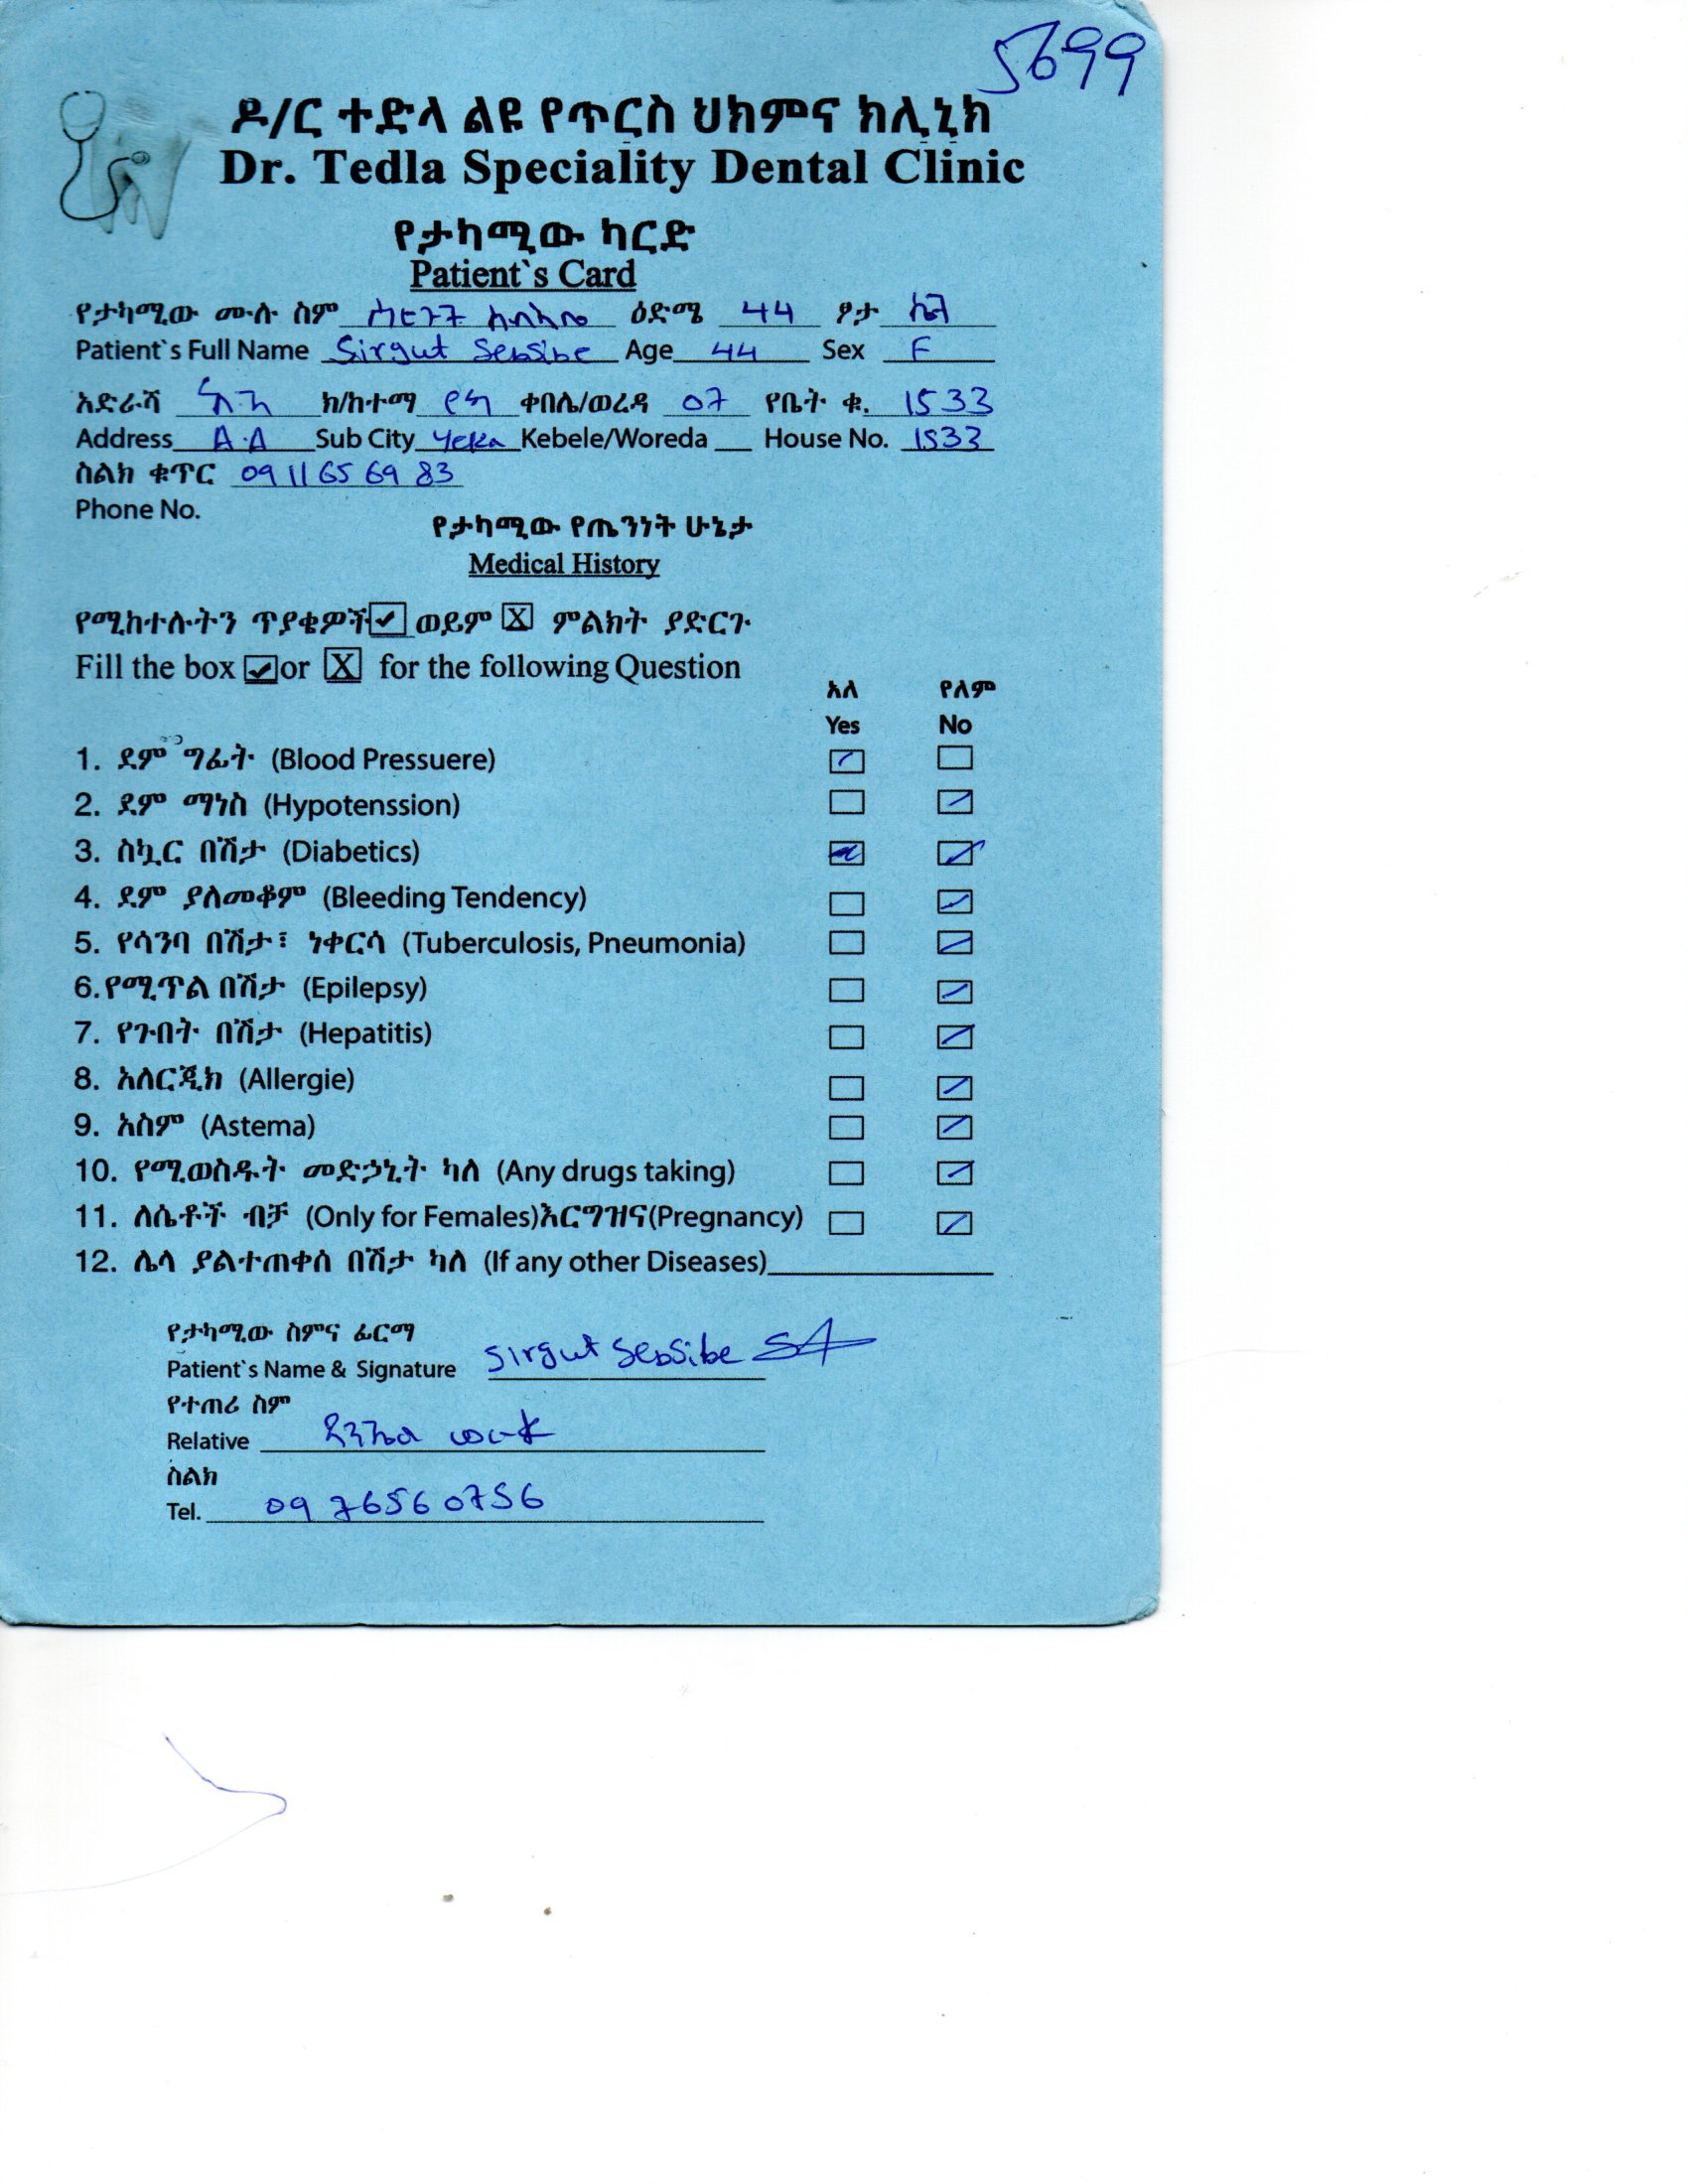 5699
ዶ/ር ተድላ ልዩ የጥርስ ህክምና ክሊኒክ
Dr. Tedla Speciality Dental Clinic
የታካሚው ካርድ
Patient`s Card
የታካሚው ሙሉ ስም ዕድሜ 44 ፆታ ሴት
Patient`s Full Name Sirgut Sebsibe Age 44 Sex F
አድራሻ አ.አ ክ/ከተማ የካ ቀበሌ/ወረዳ 07 የቤት ቁ. 1533
Address A.A Sub City Yeka Kebele/Woreda House No. 1533
ስልክ ቁጥር 09 11 65 69 83
Phone No.
የታካሚው የጤንነት ሁኔታ
Medical History
የሚከተሉትን ጥያቄዎች ✔ ወይም X ምልክት ያድርጉ
Fill the box ✔ or X for the following Question
አለ የለም
Yes No
1. ደም ግፊት (Blood Pressuere)
2. ደም ማነስ (Hypotenssion)
3. ስኳር በሽታ (Diabetics)
4. ደም ያለመቆም (Bleeding Tendency)
5. የሳንባ በሽታ፣ ነቀርሳ (Tuberculosis, Pneumonia)
6.የሚጥል በሽታ (Epilepsy)
7. የጉበት በሽታ (Hepatitis)
8. አለርጂክ (Allergie)
9. አስም (Astema)
10. የሚወስዱት መድኃኒት ካለ (Any drugs taking)
11. ለሴቶች ብቻ (Only for Females)እርግዝና(Pregnancy)
12. ሌላ ያልተጠቀሰ በሽታ ካለ (If any other Diseases)
የታካሚው ስምና ፊርማ
Patient`s Name & Signature Sirgut Sebsibe
የተጠሪ ስም
Relative
ስልክ
Tel. 09 76560756